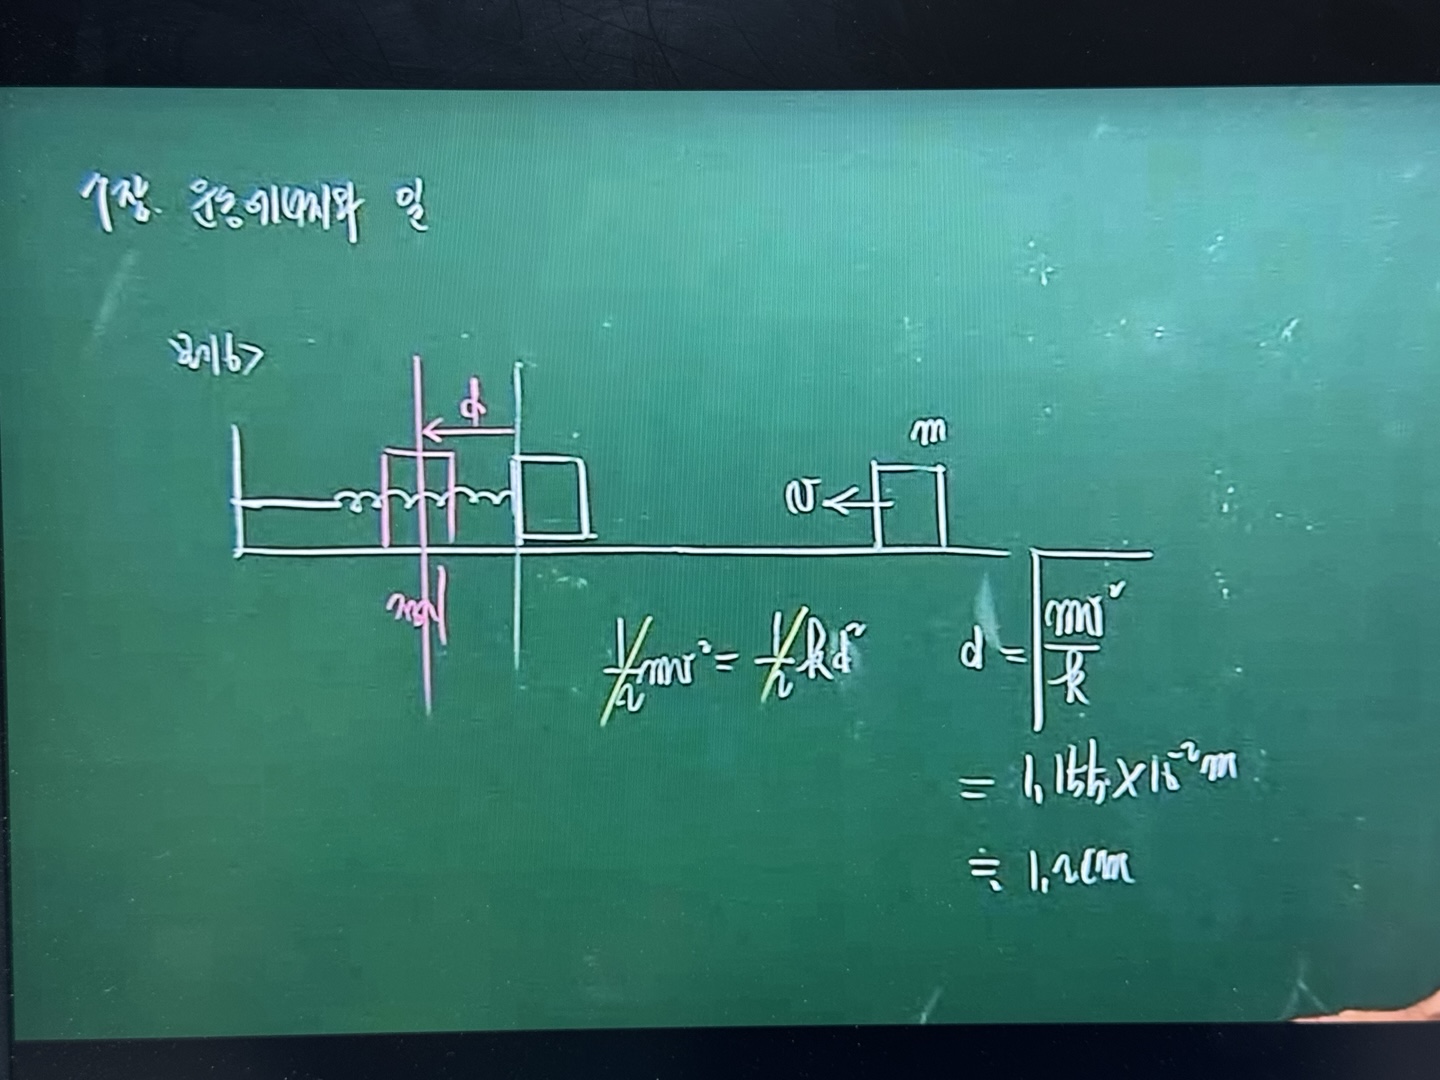 7장. 운동에너지와 일
예6>
d
m
v
½mv² = ½kd²
d = √(mv²/k)
= 1.155×10⁻²m
≒ 1.2cm